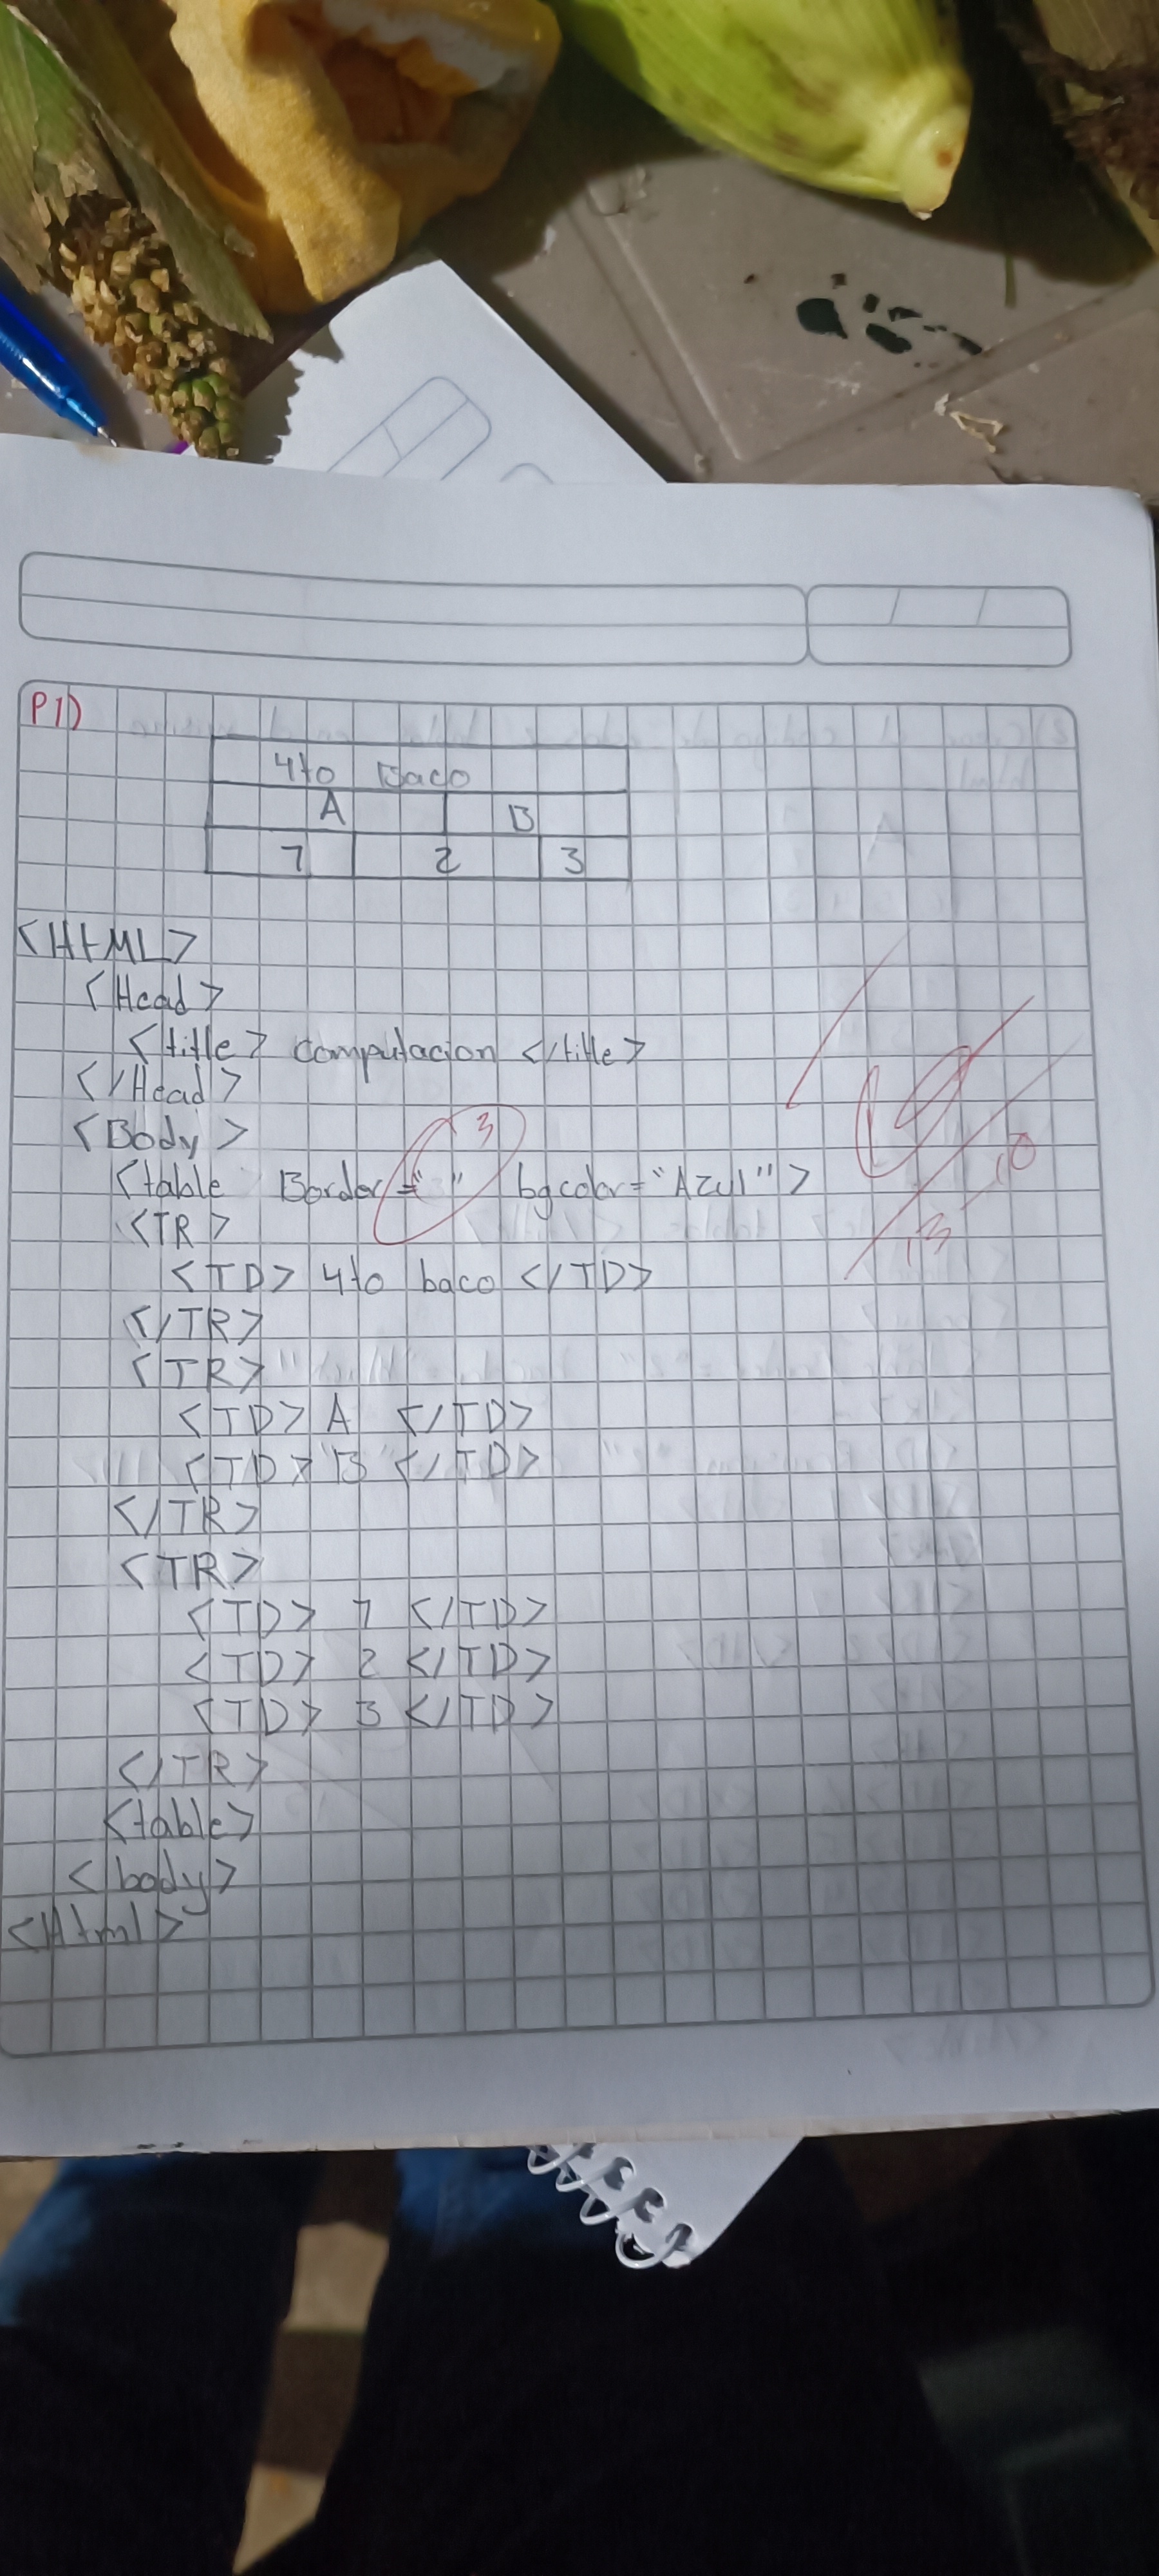 P1)
4to Baco
A B
7 2 3
<HTML>
<Head>
<title> computacion </title>
</Head>
<Body>
3
<table Border=" " bgcolor="Azul">
<TR>
<TD> 4to baco </TD>
</TR>
<TR>
<TD> A </TD>
<TD> B </TD>
</TR>
<TR>
<TD> 7 </TD>
<TD> 2 </TD>
<TD> 3 </TD>
</TR>
<table>
<body>
<Html>
10
13